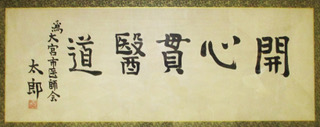 開心貫醫道
為大宮市医師会
太郎